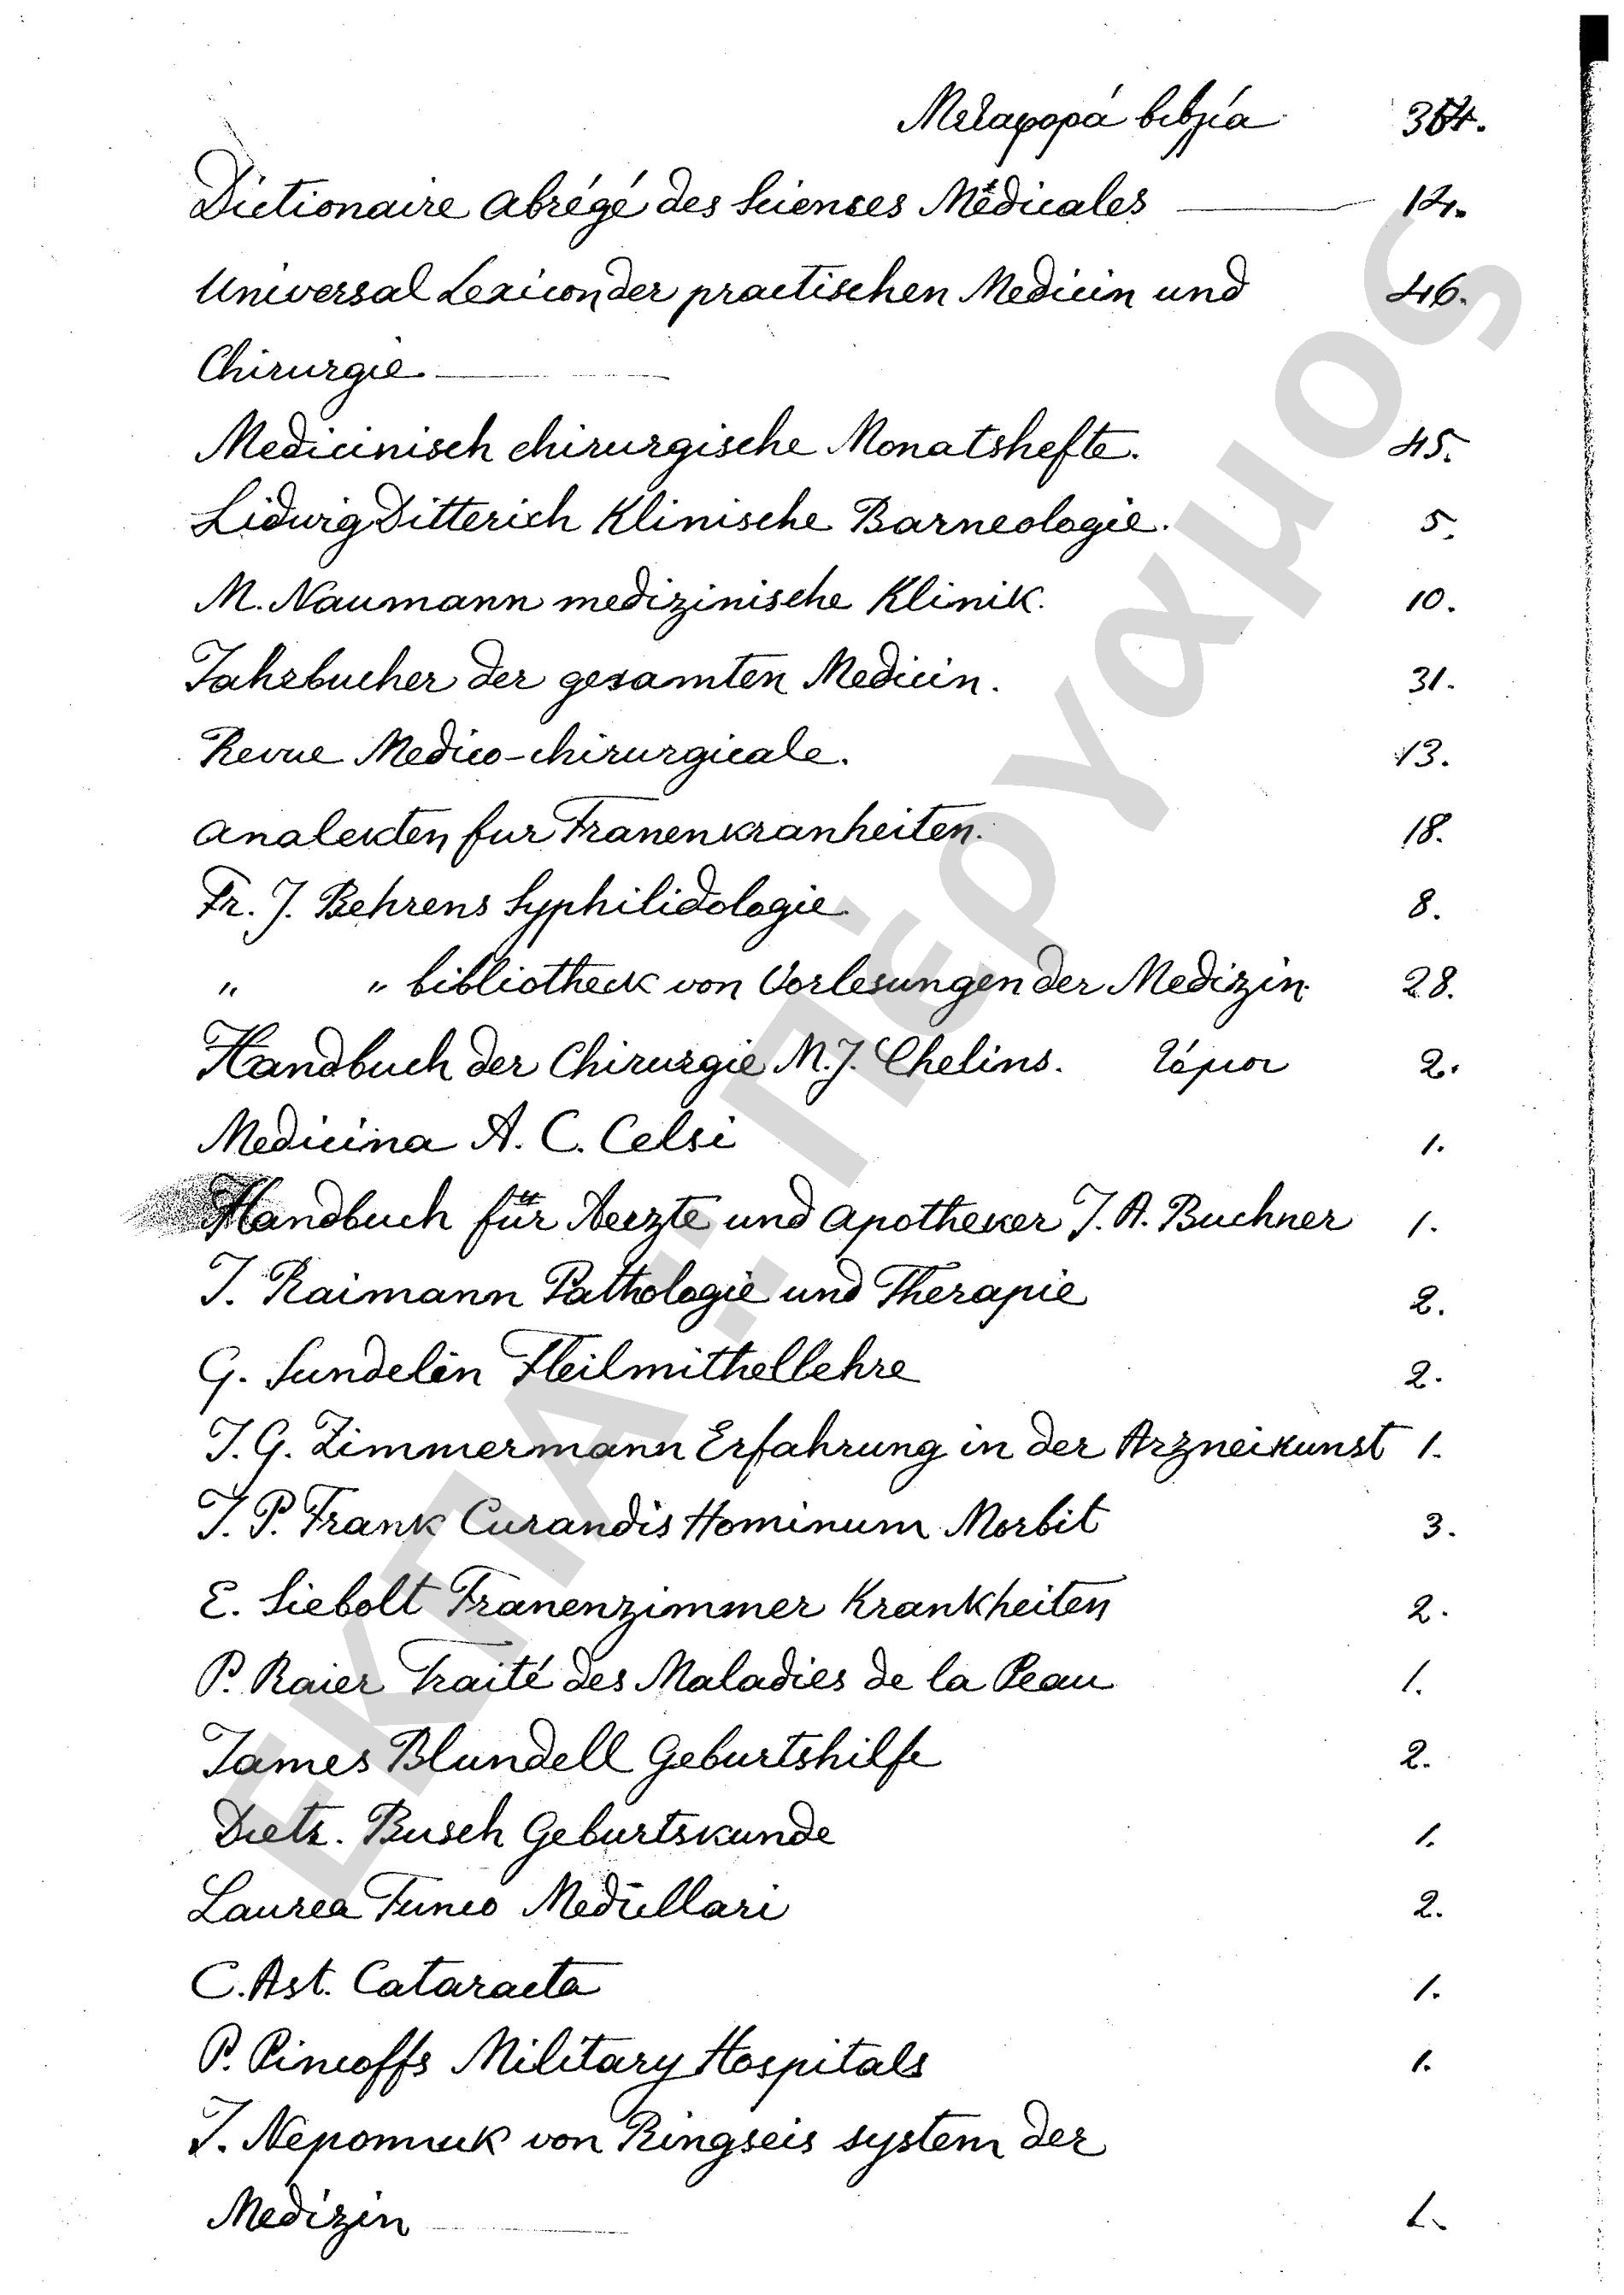 Μεταφορά βιβλία
Dictionaire abrégé des Scienses Médicales 14.
Universal Lexicon der practischen Medicin und 46.
Chirurgie
Medicinisch chirurgische Monatshefte. 45.
Lidwig Ditterich Klinische Barneologie. 5.
M. Naumann medizinische Klinik. 10.
Jahrbucher der gesamten Medicin. 31.
Revue Medico-chirurgicale. 13.
Analekten fur Franenkranheiten. 18.
Fr. J. Behrens Syphilidologie 8.
" " bibliotheck von Vorlesungen der Medizin 28.
Handbuch der Chirurgie M. J. Chelins. τόμοι 2.
Medicina A. C. Celsi 1.
Handbuch für Aerzte und Apotheker J. A. Buchner 1.
J. Raimann Pathologie und Therapie 2.
G. Sundelin Heilmithellehre 2.
J. G. Zimmermann Erfahrung in der Arzneikunst 1.
J. P. Frank Curandis Hominum Morbit 3.
E. Siebolt Franenzimmer Krankheiten 2.
P. Raier Traité des Maladies de la Peau 1.
James Blundell Geburtshilfe 2.
Dietr. Busch Geburtskunde 1.
Laurea Funco Medullari 2.
C. Ast. Cataracta 1.
P. Pincoffs Military Hospitals 1.
J. Nepomuk von Ringseis system der
Medizin 1.
ΕΚΠΑ.: Πέργαμος